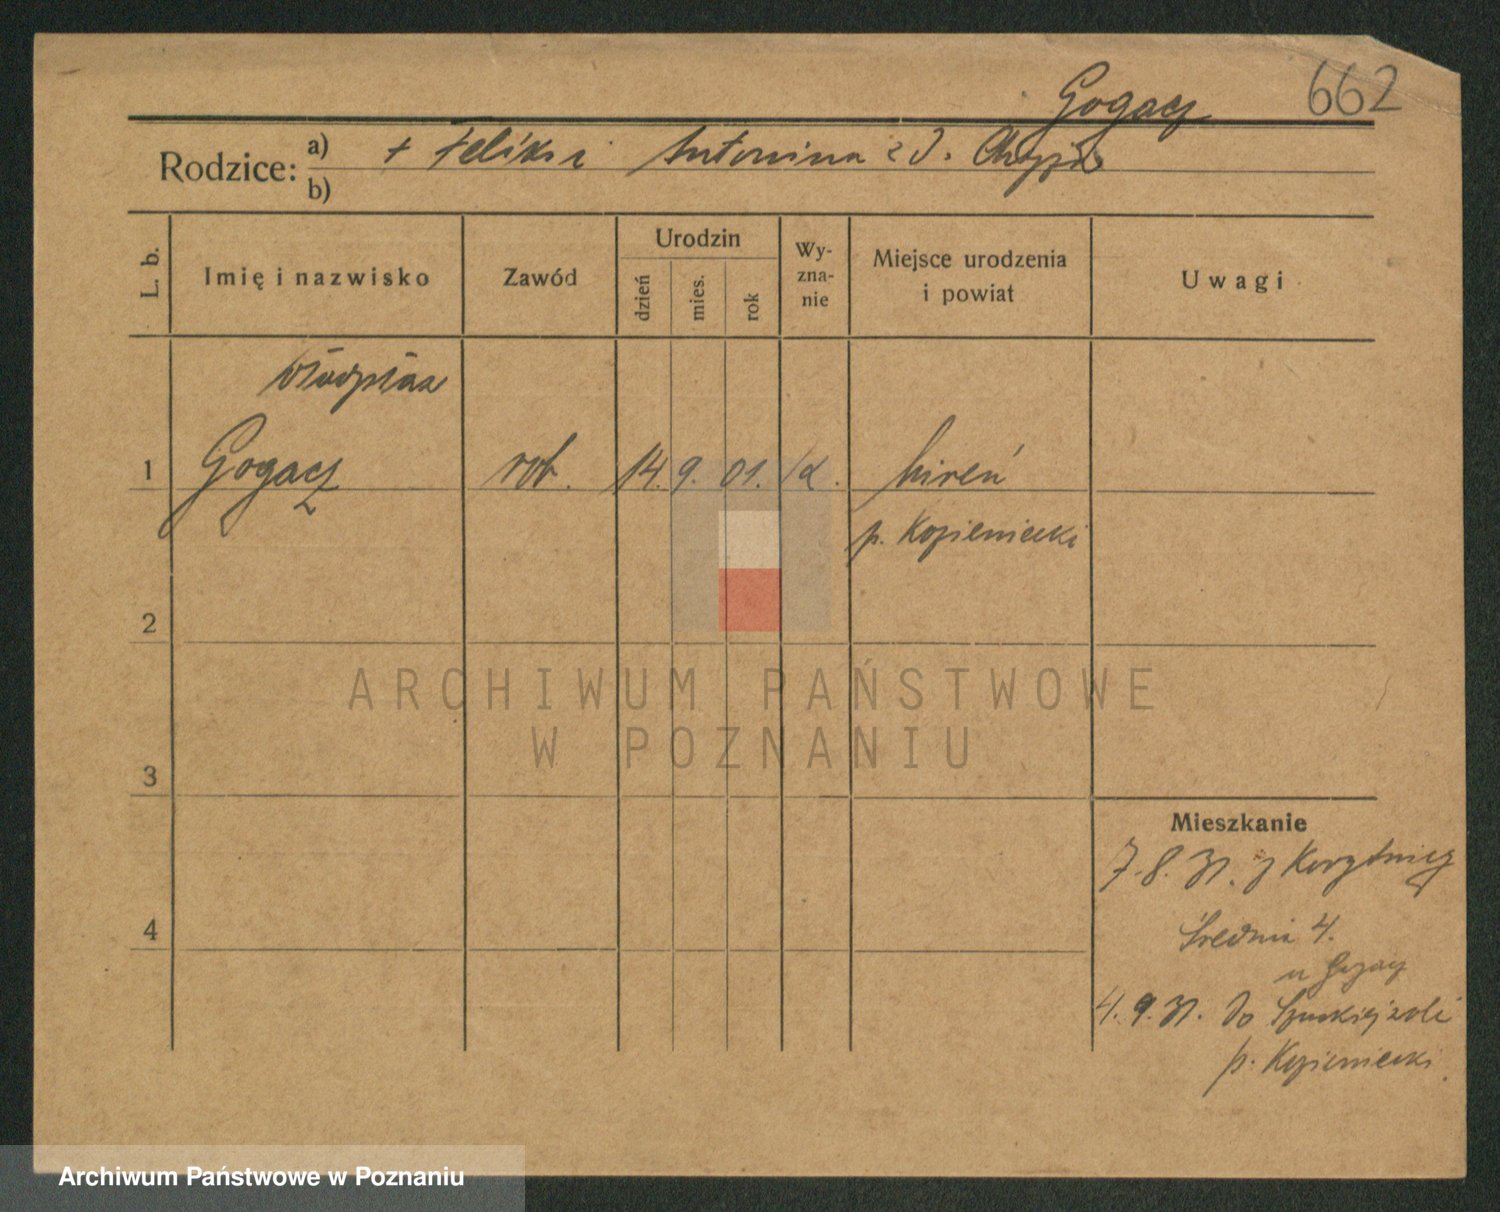 Gogacz 662
Rodzice: a) + Feliks i Antonina z d.
b)
L. b. Imię i nazwisko Zawód Urodzin dzień mies. rok Wy-zna-nie Miejsce urodzenia i powiat Uwagi
1 Gogacz rob. 14. 9. 01.
p. Kozienicki
2
ARCHIWUM PAŃSTWOWE
W POZNANIU
3
Mieszkanie
7.8.31. z Korytnicy
4 Średnia 4.
u Gogacz
4.9.31. do
p. Kozienicki
Archiwum Państwowe w Poznaniu